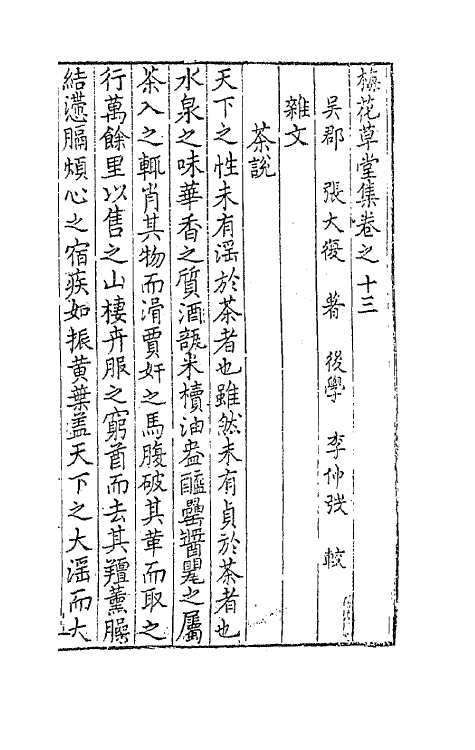 梅花草堂集卷之十三
吳郡 張大復 著 後學 李仲 較
雜文
茶說
天下之性未有滛於茶者也雖然未有貞於茶者也
水泉之味華香之質酒瓿米櫝油盎醯罍醬罌之屬
茶入之輒肖其物而滑賈奸之馬腹破其革而取之
行萬餘里以售之山棲卉服之窮酋而去其羶薰臊
結滯膈煩心之宿疾如振黄葉盖天下之大滛而大